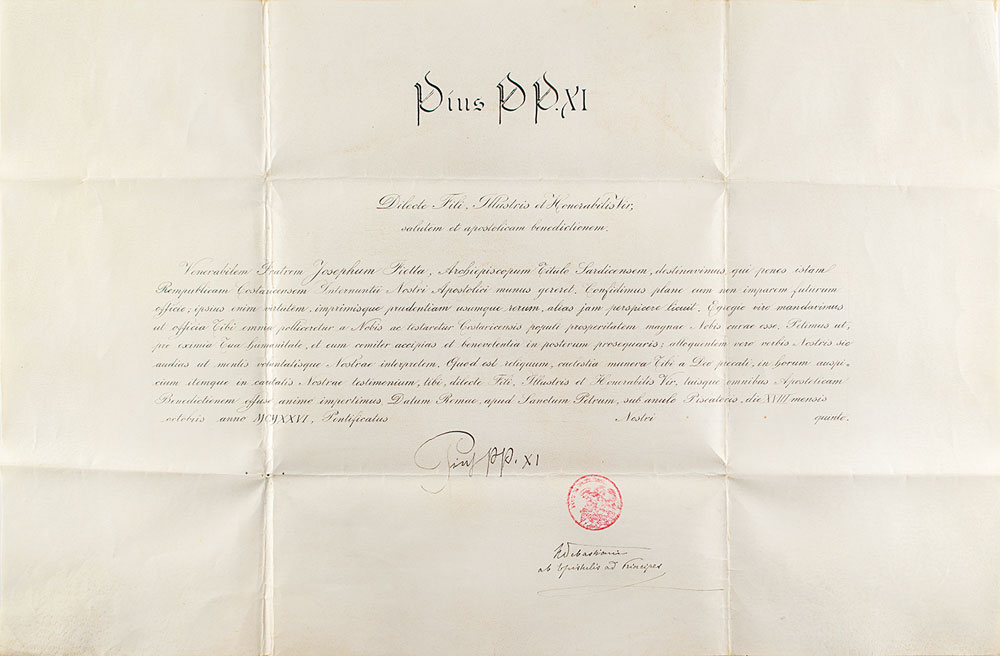 Pius PP. XI
Dilecte Fili, Illustris et Honorabilis Vir,
salutem et apostolicam benedictionem.
Venerabilem Fratrem Josephum Fietta, Archiepiscopum Titulo Sardicensem, destinavimus qui penes istam
Rempublicam Costaricensem Internuntii Nostri Apostolici munus gereret. Confidimus plane eum non imparem futurum
officio; ipsius enim virtutem, imprimisque prudentiam usumque rerum, alias jam perspicere licuit. Egregio viro mandavimus
ut officia Tibi omnia polliceretur a Nobis ac testaretur Costaricensis populi prosperitatem magnae Nobis curae esse. Petimus ut,
pro eximia Tua humanitate, et eum comiter accipias et benevolentia in posterum prosequaris; alloquentem vero verbis Nostris sic
audias ut mentis voluntatisque Nostrae interpretem. Quod est reliquum, caelestia munera Tibi a Deo precati, in horum auspi-
cium itemque in caritatis Nostrae testimonium, tibi, dilecte Fili, Illustris et Honorabilis Vir, tuisque omnibus Apostolicam
Benedictionem effuso animo impertimus. Datum Romae, apud Sanctum Petrum, sub anulo Piscatoris, die XIIII mensis
octobris anno MCMXXVI, Pontificatus Nostri quinto.
Pius PP. XI
ab Epistulis ad Principes